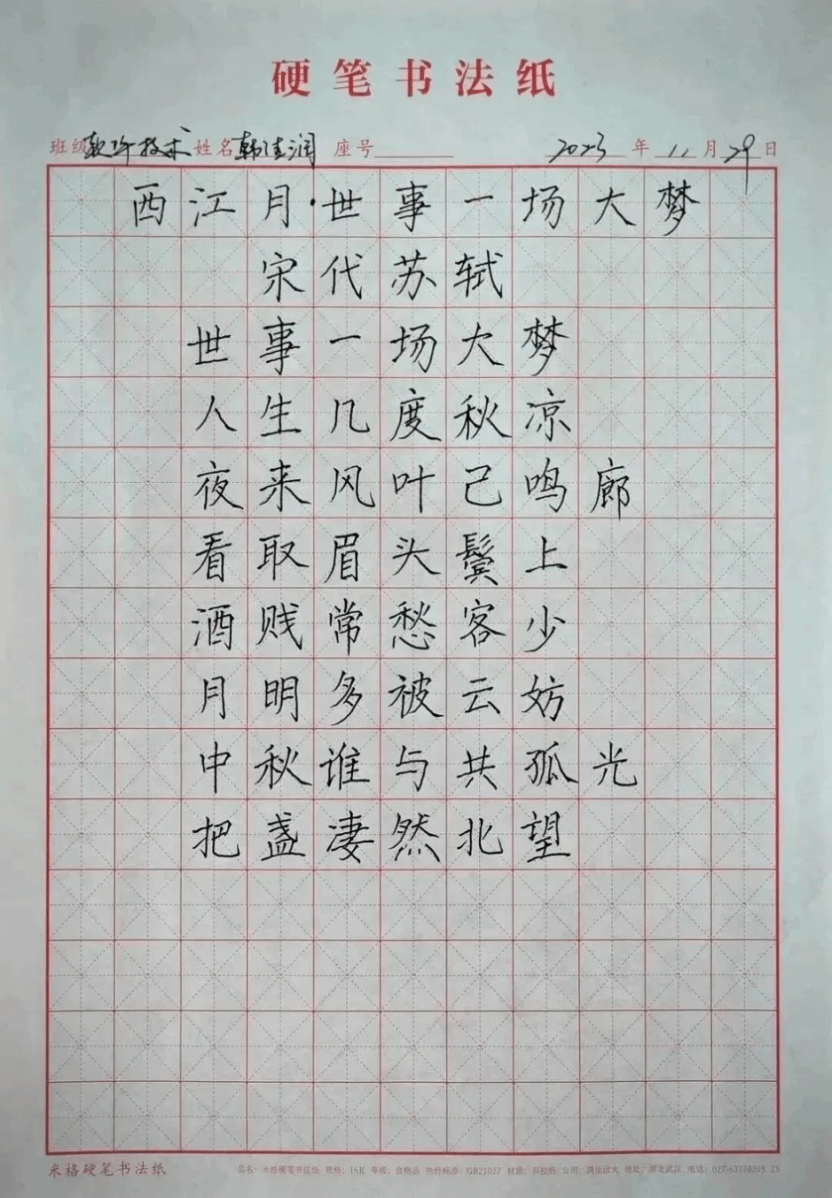 硬笔书法纸
班级 软件技术 姓名 韩佳润 座号 2023 年 11 月 29 日
西江月·世事一场大梦
宋代苏轼
世事一场大梦
人生几度秋凉
夜来风叶已鸣廊
看取眉头鬓上
酒贱常愁客少
月明多被云妨
中秋谁与共孤光
把盏凄然北望
米格硬笔书法纸
品名：米格硬笔书法纸 规格：16K 等级：合格品